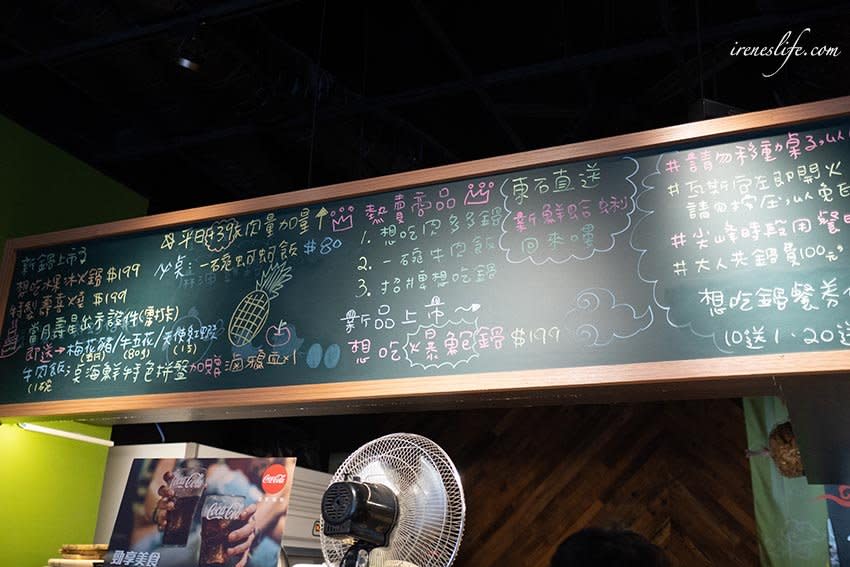 ireneslife.com
新鍋上市
想吃爆冰火鍋 $199
特製壽喜燒 $199
當月壽星出示證件(需打卡)
即送→梅花豬/牛五花/天使紅蝦
牛肉飯:
海鮮特色拼盤加贈滷
平日 肉量加量↑
一碗 飯 $80
熱賣商品
1. 想吃肉多多鍋
2. 一碗牛肉飯
3. 招牌想吃鍋
新品上市~
想吃爆鮑鍋 $199
東石直送
新鮮蛤蜊
回來囉
#請勿移動桌子,以
#瓦斯官左即開火
請勿按壓,以免
#尖峰時段用餐
#大人共鍋費100元
想吃鍋餐券
10送1、20送
Coca-Cola
Coca-Cola
Coca-Cola
勁享美食